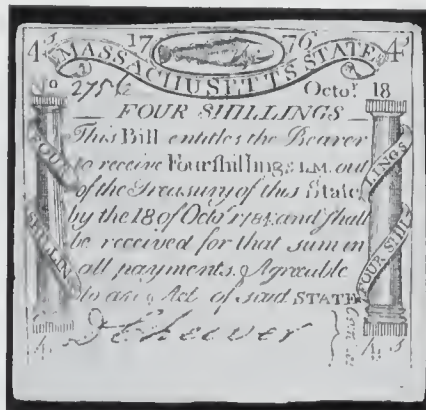 4s 17 76 4s
MASSACHUSETTS STATE
No 2756 Octor. 18
FOUR SHILLINGS
This Bill entitles the Bearer
to receive Four shillings L.M. out
of the Treasury of this State
by the 18 of Octr. 1784 and shall
be received for that sum in
all payments, Agreeable
to an Act of said STATE
FOUR
SHILLIN
LINGS
FOUR SHIL
D Cheever
4s 4s